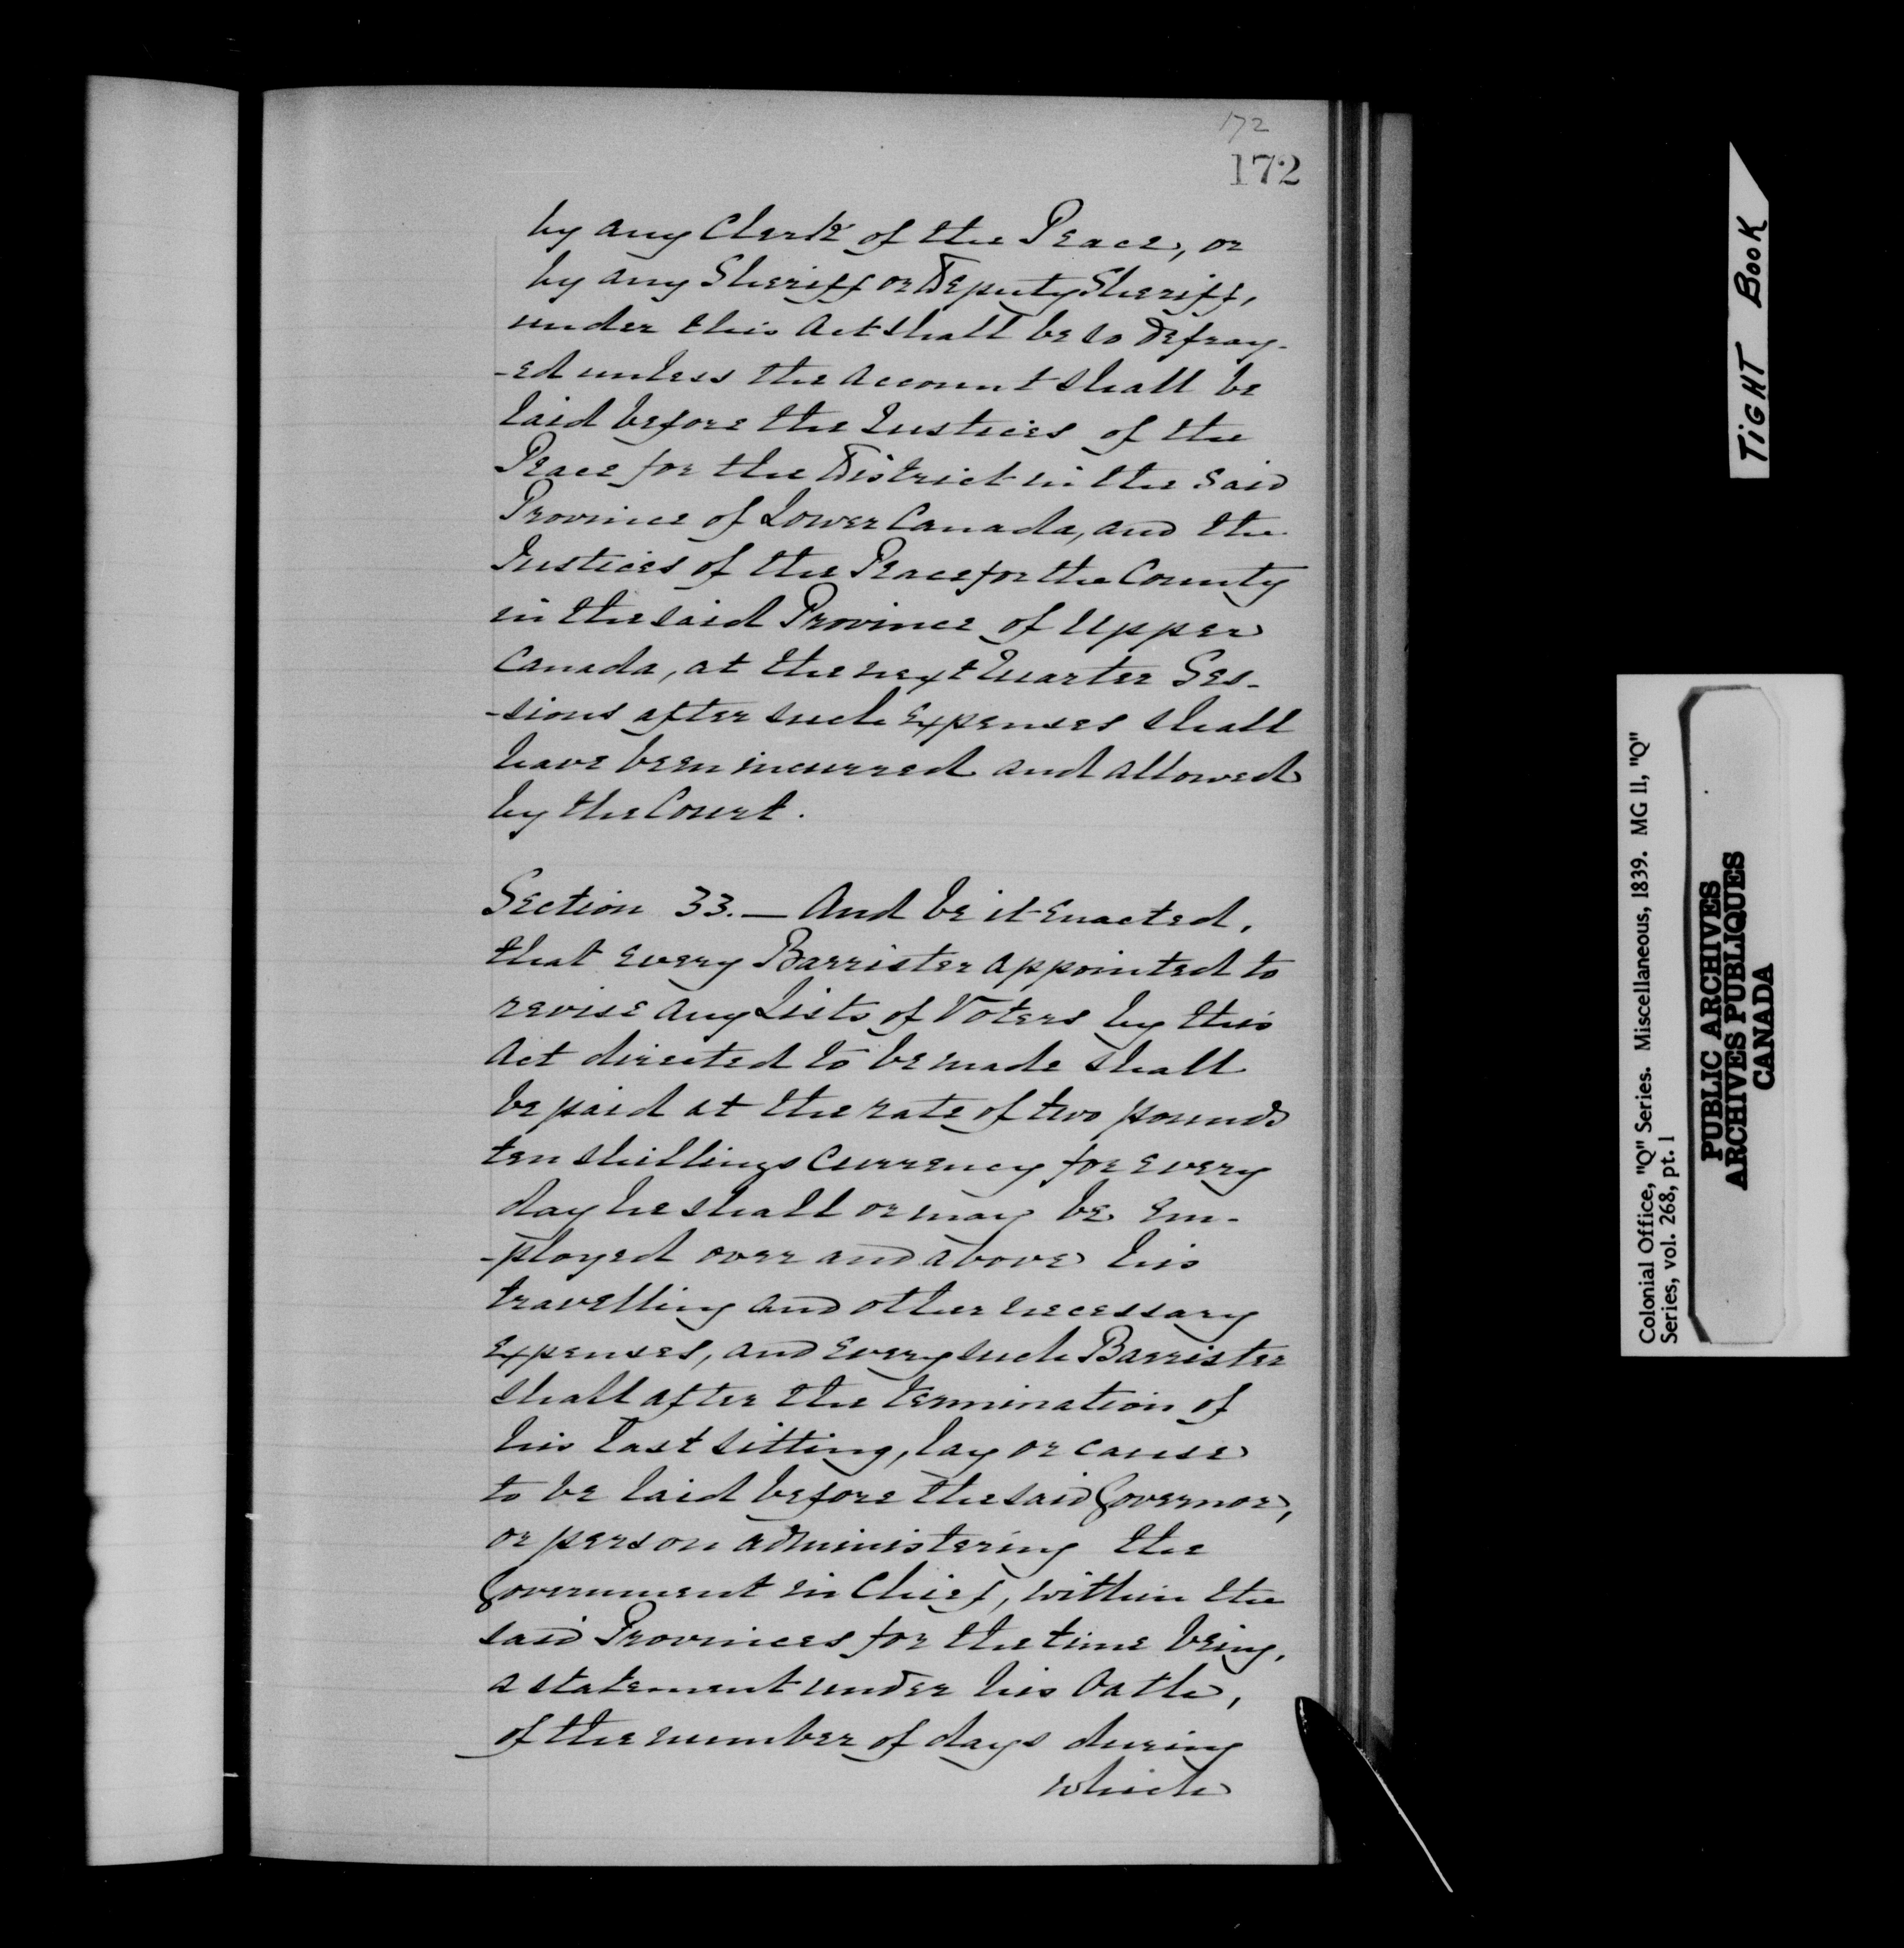 172
172
by any Clerk of the Peace, or
by any Sheriff or Deputy Sheriff,
under this Act shall be so defray-
-ed unless the Account shall be
laid before the Justices of the
Peace for the District in the said
Province of Lower Canada, and the
Justices of the Peace for the County
in the said Province of Upper
Canada, at the next Quarter Ses-
-sions after such Expenses shall
have been incurred and allowed
by the Court.
Section 33. — And be it Enacted,
that every Barrister appointed to
revise any Lists of Voters by this
Act directed to be made shall
be paid at the rate of two pounds
ten shillings Currency for every
day he shall or may be em-
-ployed over and above his
travelling and other necessary
Expenses, and every such Barrister
shall after the termination of
his last sitting, lay or cause
to be laid before the said Governor,
or person administering the
Government in Chief, within the
said Provinces for the time being,
a statement under his Oath,
of the number of days during
which
TIGHT BOOK
Colonial Office, "Q" Series. Miscellaneous, 1839. MG 11, "Q"
Series, vol. 268, pt. 1
PUBLIC ARCHIVES
ARCHIVES PUBLIQUES
CANADA